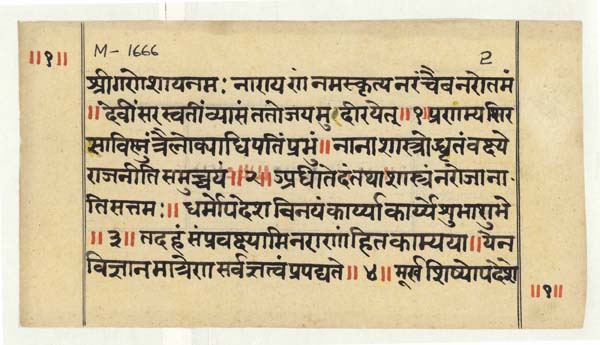 ॥१॥ M - 1666 2
श्रीगणेशायनमः नारायणं नमस्कृत्य नरंचैवनरोतमं
॥देवींसरस्वतींव्यासंततोजयमुदीरयेत्॥१॥प्रणाम्यशिर
साविष्णुंत्रैलोक्याधिपतिंप्रभुं॥नानाशास्त्रोद्धृतंवक्ष्ये
राजनीतिसमुच्चयं॥२॥ऽप्रधीतेदंतथाशास्त्रंनरोजाना-
तिसत्तमः॥धर्मोपदेशविनयंकार्य्याकार्य्येशुभाशुभे
॥३॥तदहंसंप्रवक्ष्यामिनराणांहितकाम्यया॥येन
विज्ञानमात्रेणसर्वज्ञत्वंप्रपद्यते॥४॥मूर्खशिष्योपदेशे
॥१॥